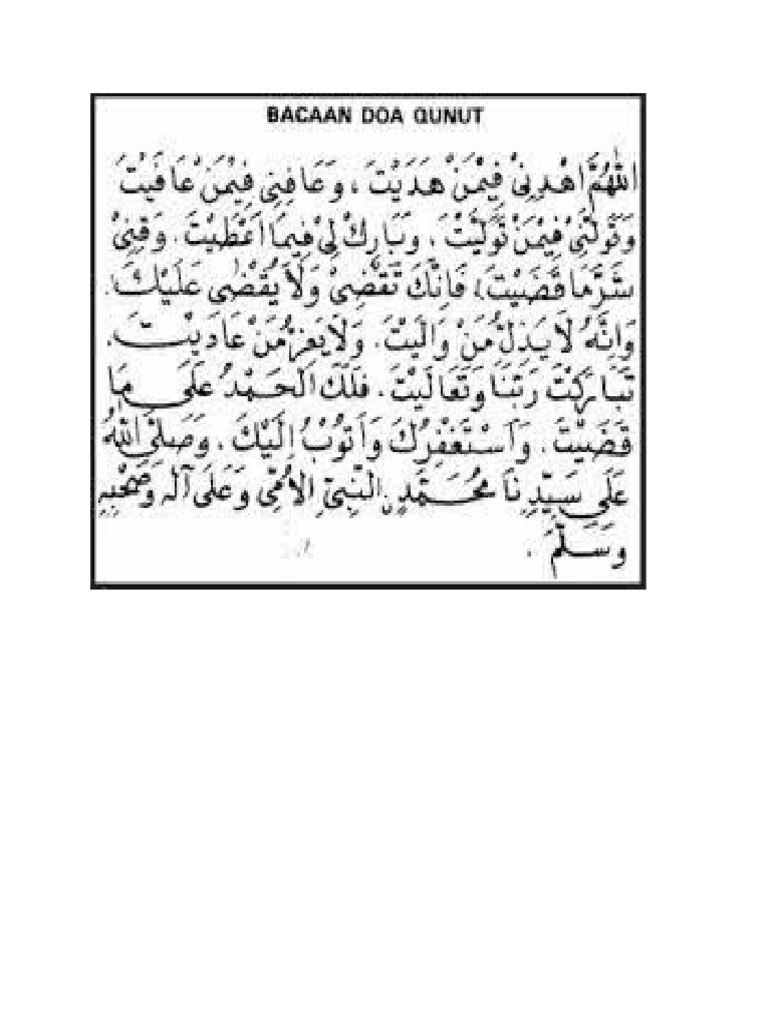 BACAAN DOA QUNUT
اَللّٰهُمَّ اهْدِنِيْ فِيْمَنْ هَدَيْتَ ، وَعَافِنِى فِيْمَنْ عَافَيْتَ
وَتَوَلَّنِيْ فِيْمَنْ تَوَلَّيْتَ ، وَبَارِكْ لِيْ فِيمَا اَعْطَيْتَ . وَقِنِيْ
شَرَّمَا قَضَيْتَ ، فَاِنَّكَ تَقْضِيْ وَلَا يُقْضٰى عَلَيْكَ .
وَاِنَّهُ لَا يَذِلُّ مَنْ وَالَيْتَ . وَلَا يَعِزُّ مَنْ عَادَيْتَ .
تَبَارَكْتَ رَبَّنَا وَتَعَالَيْتَ . فَلَكَ الْحَمْدُ عَلَى مَا
قَضَيْتَ . وَاَسْتَغْفِرُكَ وَاَتُوْبُ اِلَيْكَ . وَصَلَّى اللهُ
عَلَى سَيِّدِنَا مُحَمَّدٍ النَّبِيِّ الْاُمِّيِّ وَعَلَى آلِهِ وَصَحْبِهِ
وَسَلَّمَ .